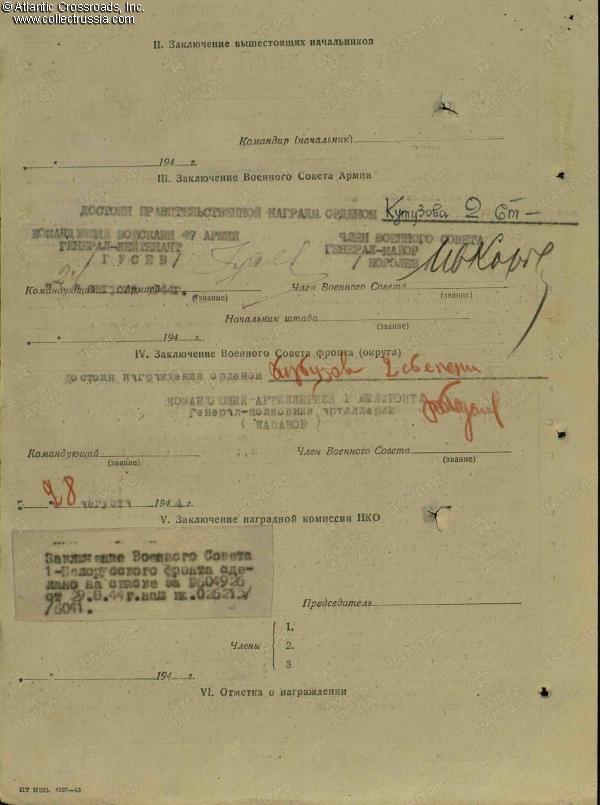 © Atlantic Crossroads, Inc.
www.collectrussia.com
II. Заключение вышестоящих начальников
Командир (начальник)
" " 194 г.
III. Заключение Военного Совета Армии
ДОСТОИН ПРАВИТЕЛЬСТВЕННОЙ НАГРАДЫ ОРДЕНОМ Кутузова 2 ст-
КОМАНДУЮЩИЙ ВОЙСКАМИ 47 АРМИИ ЧЛЕН ВОЕННОГО СОВЕТА
ГЕНЕРАЛ-ЛЕЙТЕНАНТ ГЕНЕРАЛ-МАЙОР
/ ГУСЕВ / КОРОЛЕВ
Командующий Армией Член Военного Совета
(звание) (звание)
Начальник штаба
(звание)
" " 194 г.
IV. Заключение Военного Совета фронта (округа)
достоин награждения орденом Кутузова 2 степени
КОМАНДУЮЩИЙ АРТИЛЛЕРИЕЙ 1 БЕЛФРОНТА
Генерал-полковник артиллерии
( КАЗАКОВ )
Командующий Член Военного Совета
(звание) (звание)
" 28 августа 1944 г.
V. Заключение наградной комиссии НКО
Заключение Военного Совета
1-Белорусского фронта сде-
лано на списке за №604926
от 29.8.44г. нам вх.
/6041.
Председатель
1.
Члены 2.
3.
" " 194 г.
VI. Отметка о награждении
ЦТ НКО. 4227—43